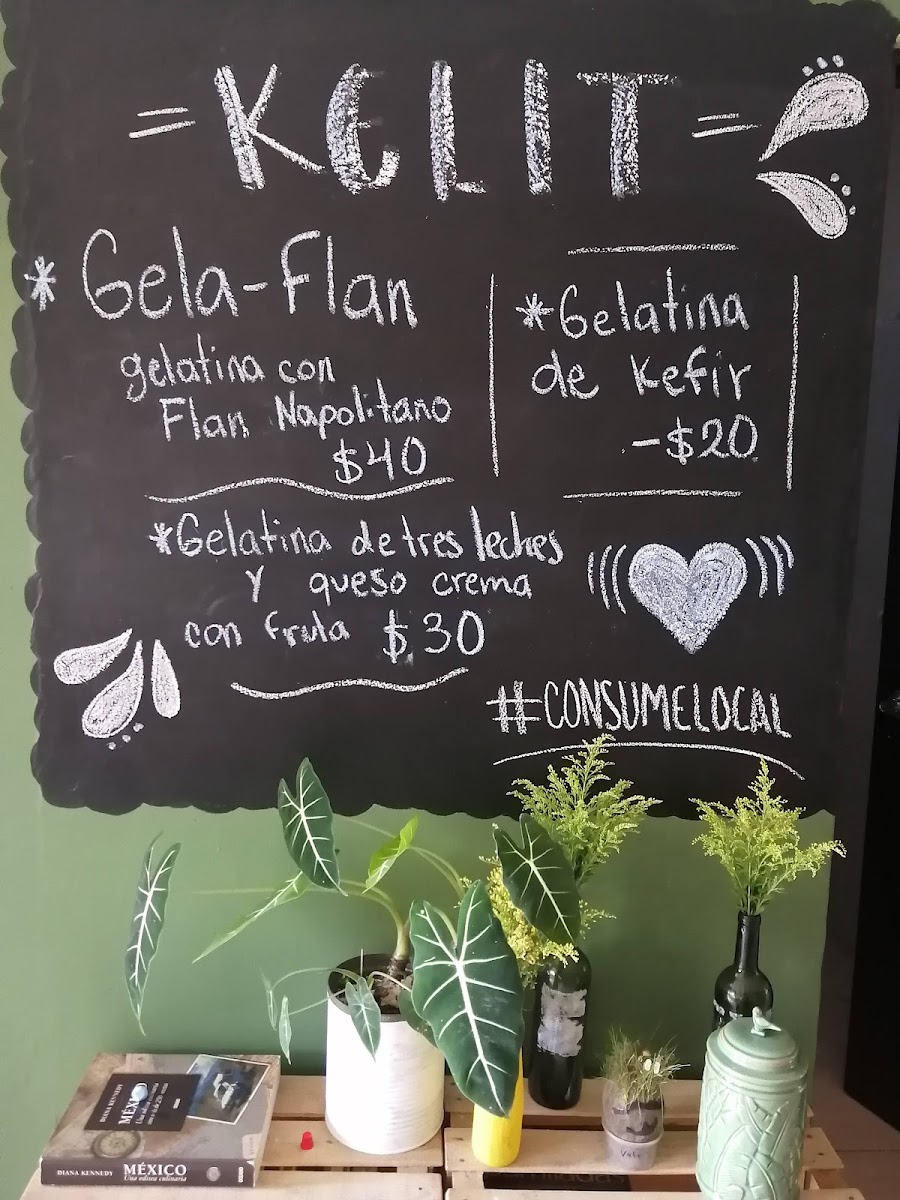 =KELIT=
* Gela-Flan
gelatina con
Flan Napolitano
$40
*Gelatina
de Kefir
-$20
*Gelatina de tres leches
Y queso crema
con fruta $30
#CONSUMELOCAL
DIANA KENNEDY
MÉXICO
Una odisea culinaria
DIANA KENNEDY MÉXICO
Una odisea culinaria